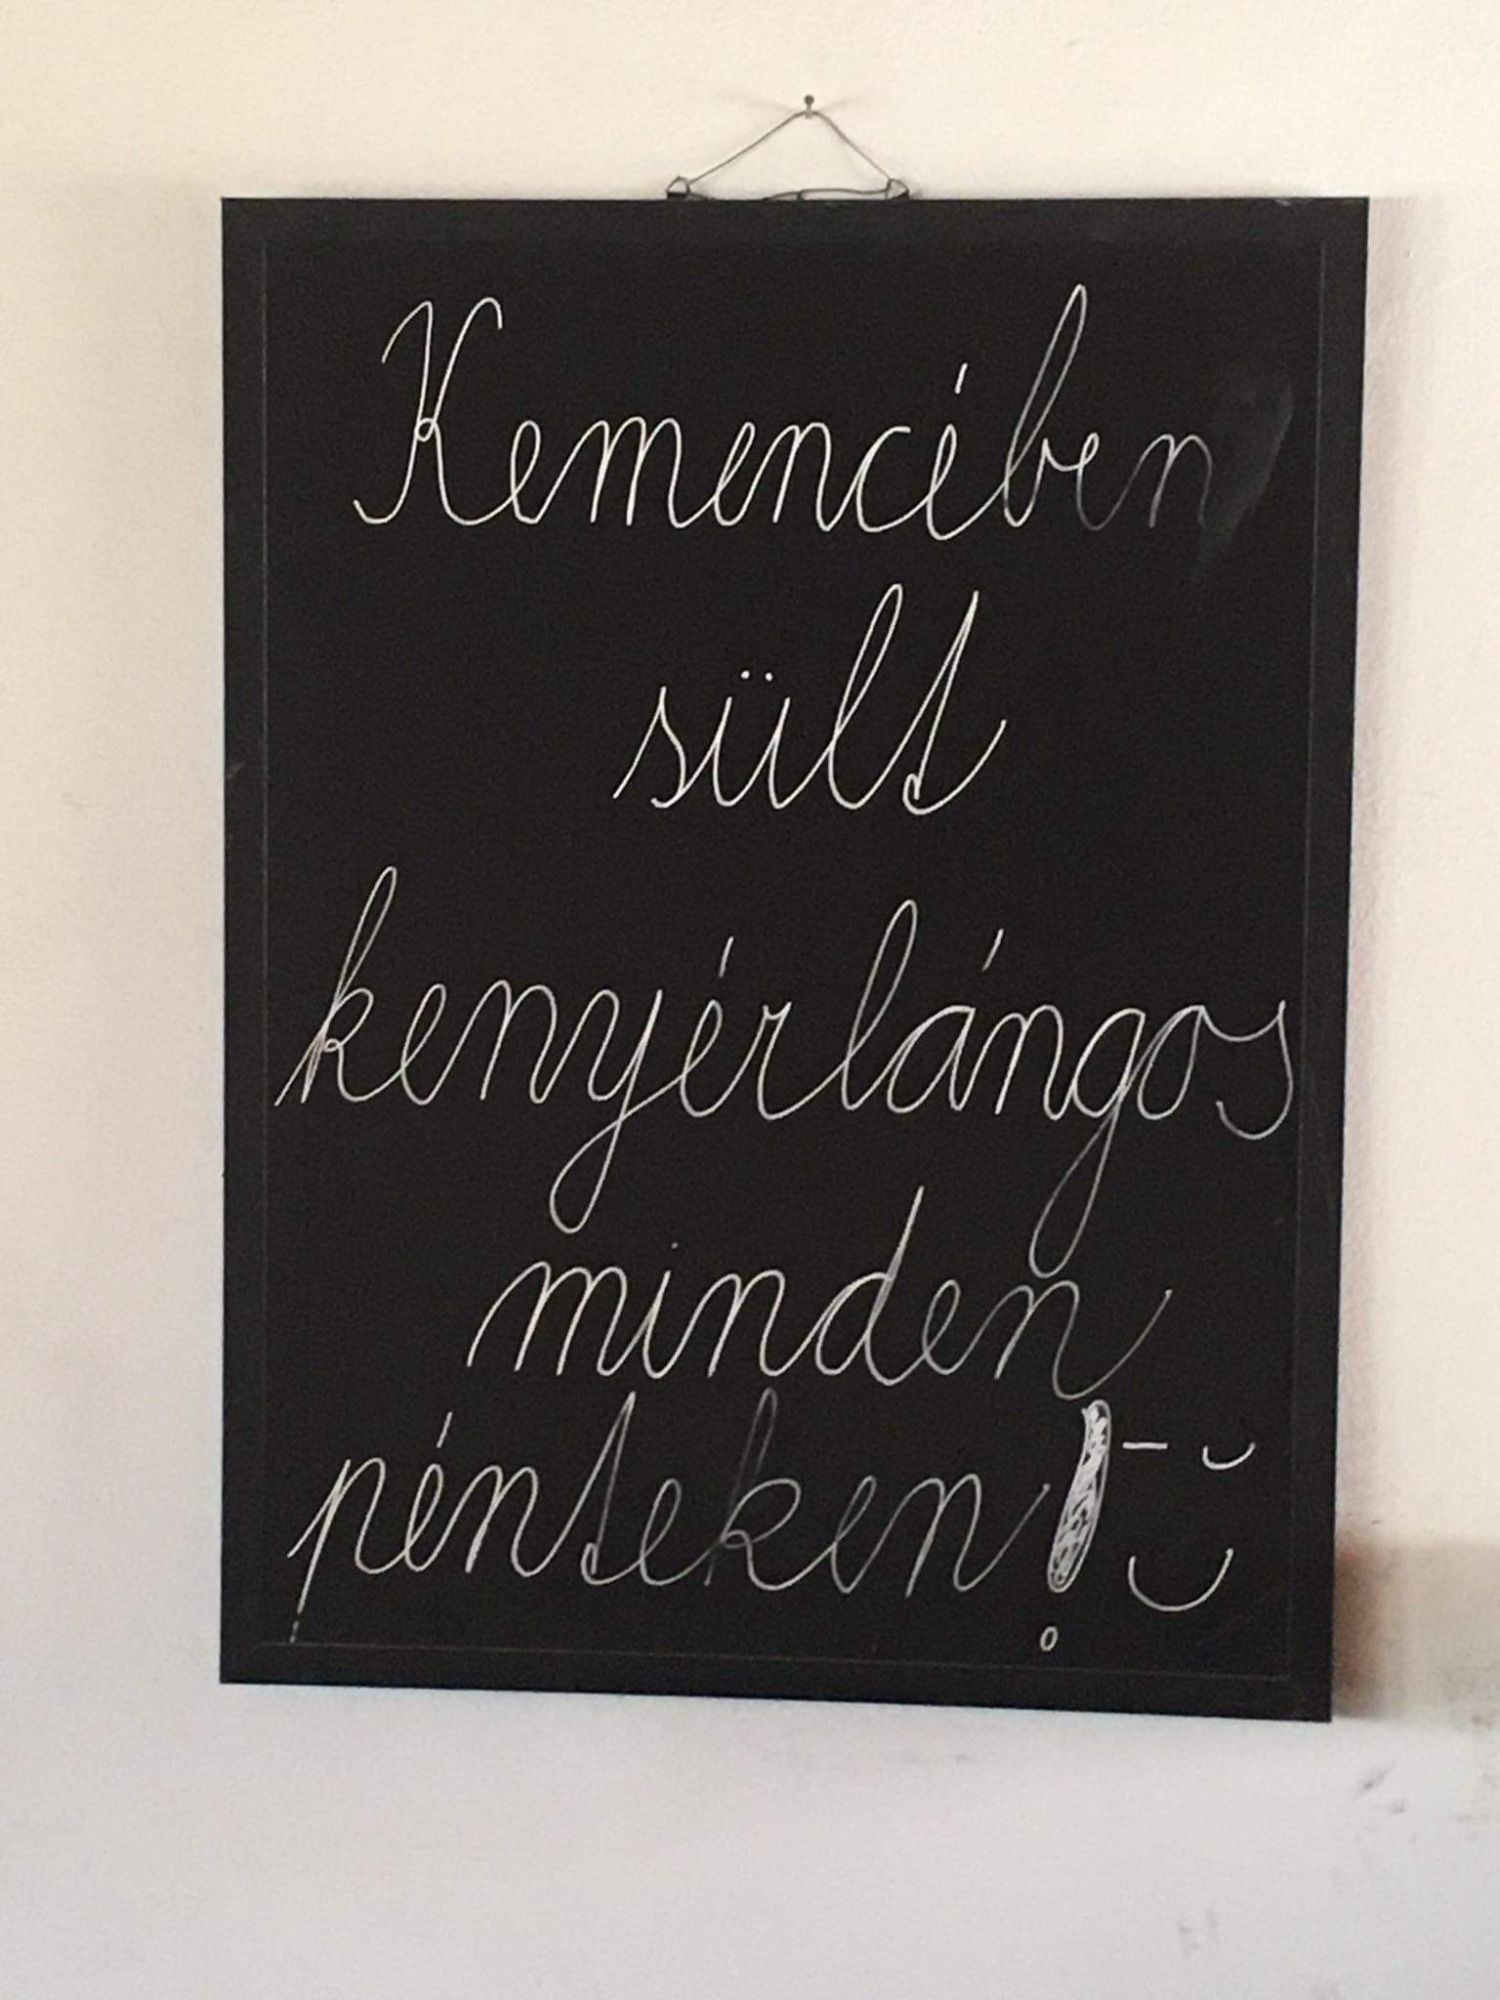 Kemencében
sült
kenyérlángos
minden
pénteken!